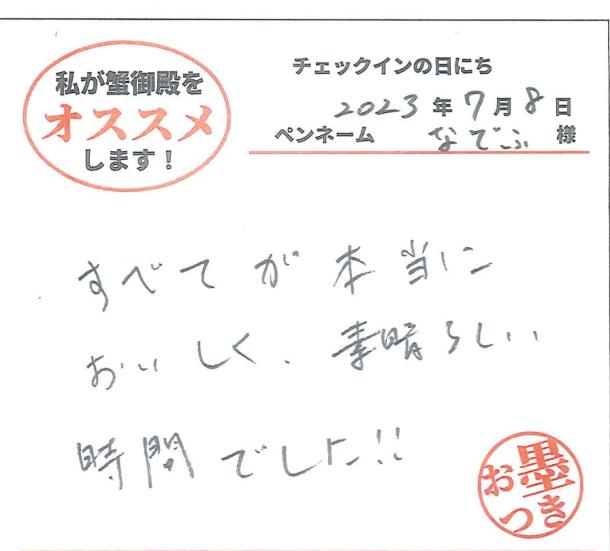 私が蟹御殿を
オススメ
します！
チェックインの日にち
2023年7月8日
ペンネーム なでふ 様
すべてが本当に
おいしく、素晴らしい
時間でした!!
お墨
つき